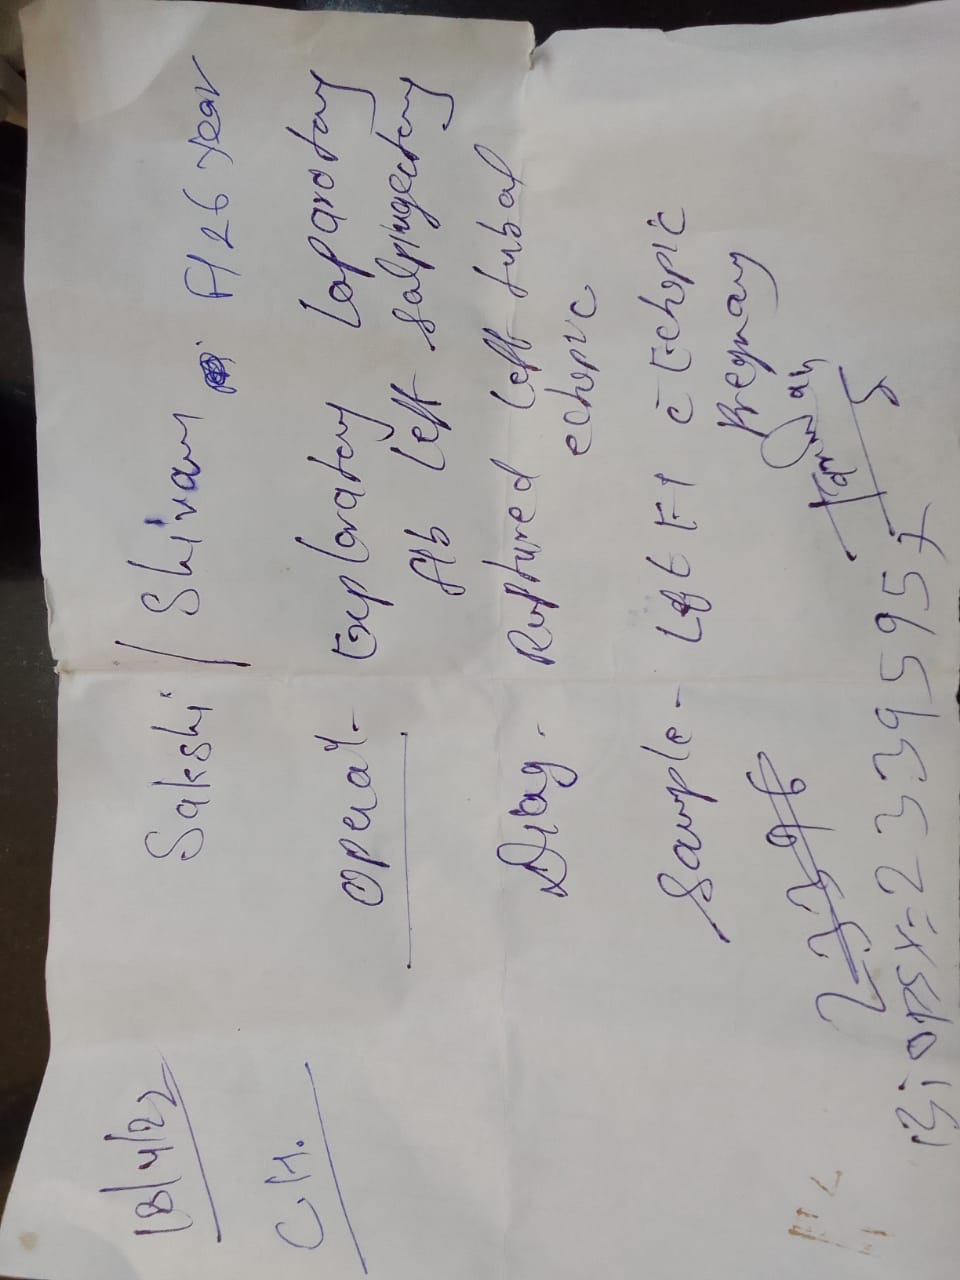 18/4/22
Sakshi / Shivam F/26 year
C.H.
Operat- Exploratory Laparotomy
f/b left salpingectomy
Diag - Ruptured left tubal
echopic
Sample - Left FT c̄ Echopic
Pregnancy
2396
Biopsy = 23395957